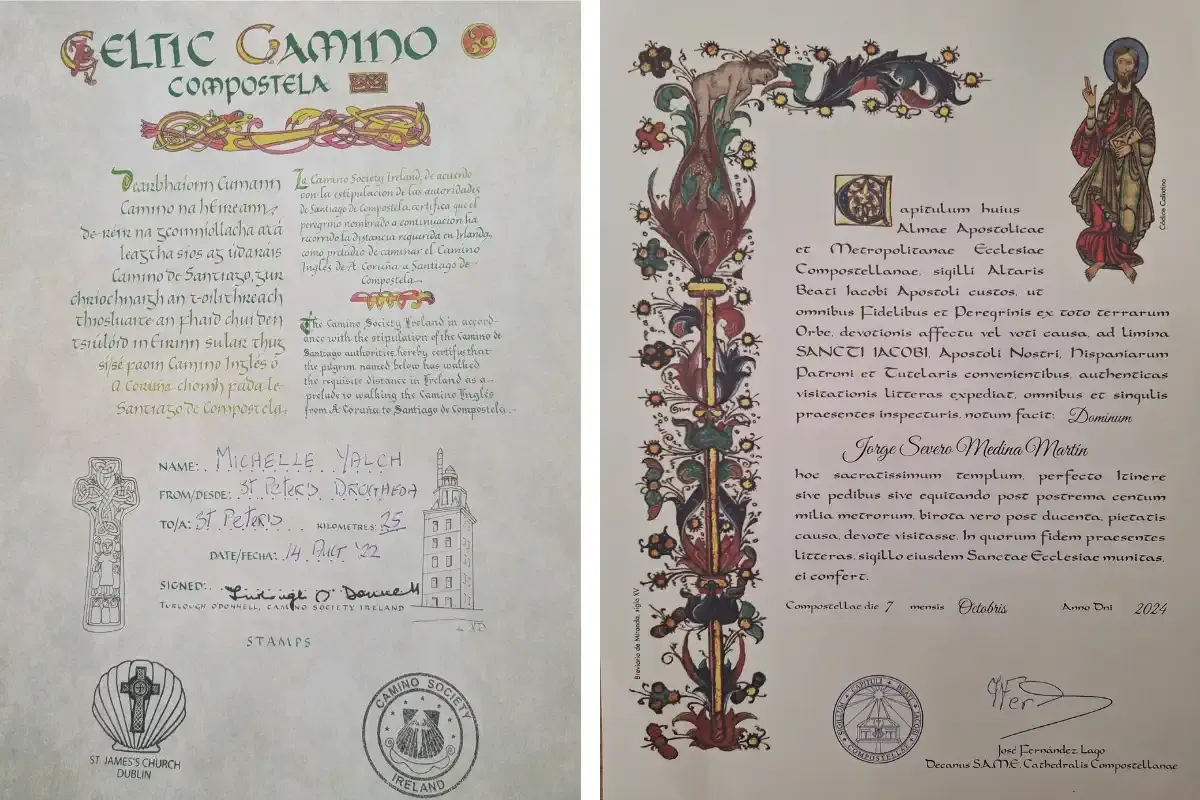 CELTIC CAMINO
COMPOSTELA
Dearbhaíonn Cumann
Camino na hÉireann,
de réir na gcoinníollacha atá
leagtha síos ag údaráis
Camino de Santiago, gur
chríochnaigh an t-oilithreach
thíosluaite an fhaid chuí den
tsiúlóid in Éirinn sular thug
sí/sé faoin Camino Inglés ó
A Coruña chomh fada le
Santiago de Compostela.
La Camino Society Ireland, de acuerdo
con la estipulación de las autoridades
de Santiago de Compostela, certifica que el
peregrino nombrado a continuación ha
recorrido la distancia requerida en Irlanda,
como preludio de caminar el Camino
Inglés de A Coruña a Santiago de
Compostela.
The Camino Society Ireland in accord-
ance with the stipulation of the Camino de
Santiago authorities, hereby certifies that
the pilgrim named below has walked
the requisite distance in Ireland as a
prelude to walking the Camino Inglés
from A Coruña to Santiago de Compostela.
NAME: MICHELLE YALCH
FROM/DESDE: ST PETER'S DROGHEDA
TO/A: ST PETER'S KILOMETRES: 25
DATE/FECHA: 14 AUGT '22
SIGNED: Turlough O'Donnell
TURLOUGH O'DONNELL, CAMINO SOCIETY IRELAND
STAMPS
ST. JAMES'S CHURCH
DUBLIN
CAMINO SOCIETY
IRELAND
Códice Calixtino
Capitulum huius
Almae Apostolicae
et Metropolitanae Ecclesiae
Compostellanae, sigilli Altaris
Beati Iacobi Apostoli custos, ut
omnibus Fidelibus et Peregrinis ex toto terrarum
Orbe, devotionis affectu vel voti causa, ad limina
SANCTI IACOBI, Apostoli Nostri, Hispaniarum
Patroni et Tutelaris convenientibus, authenticas
visitationis litteras expediat, omnibus et singulis
praesentes inspecturis, notum facit: Dominum
Jorge Severo Medina Martín
hoc sacratissimum templum, perfecto Itinere
sive pedibus sive equitando post postrema centum
milia metrorum, birota vero post ducenta, pietatis
causa, devote visitasse. In quorum fidem praesentes
litteras, sigillo eiusdem Sanctae Ecclesiae munitas,
ei confert.
Compostellae die 7 mensis Octobris Anno Dni 2024
Breviario de Miranda, siglo XV
SIGILLUM CAPITULI BEATI JACOBI
COMPOSTELLAE
José Fernández Lago
Decanus S.A.M.E. Cathedralis Compostellanae